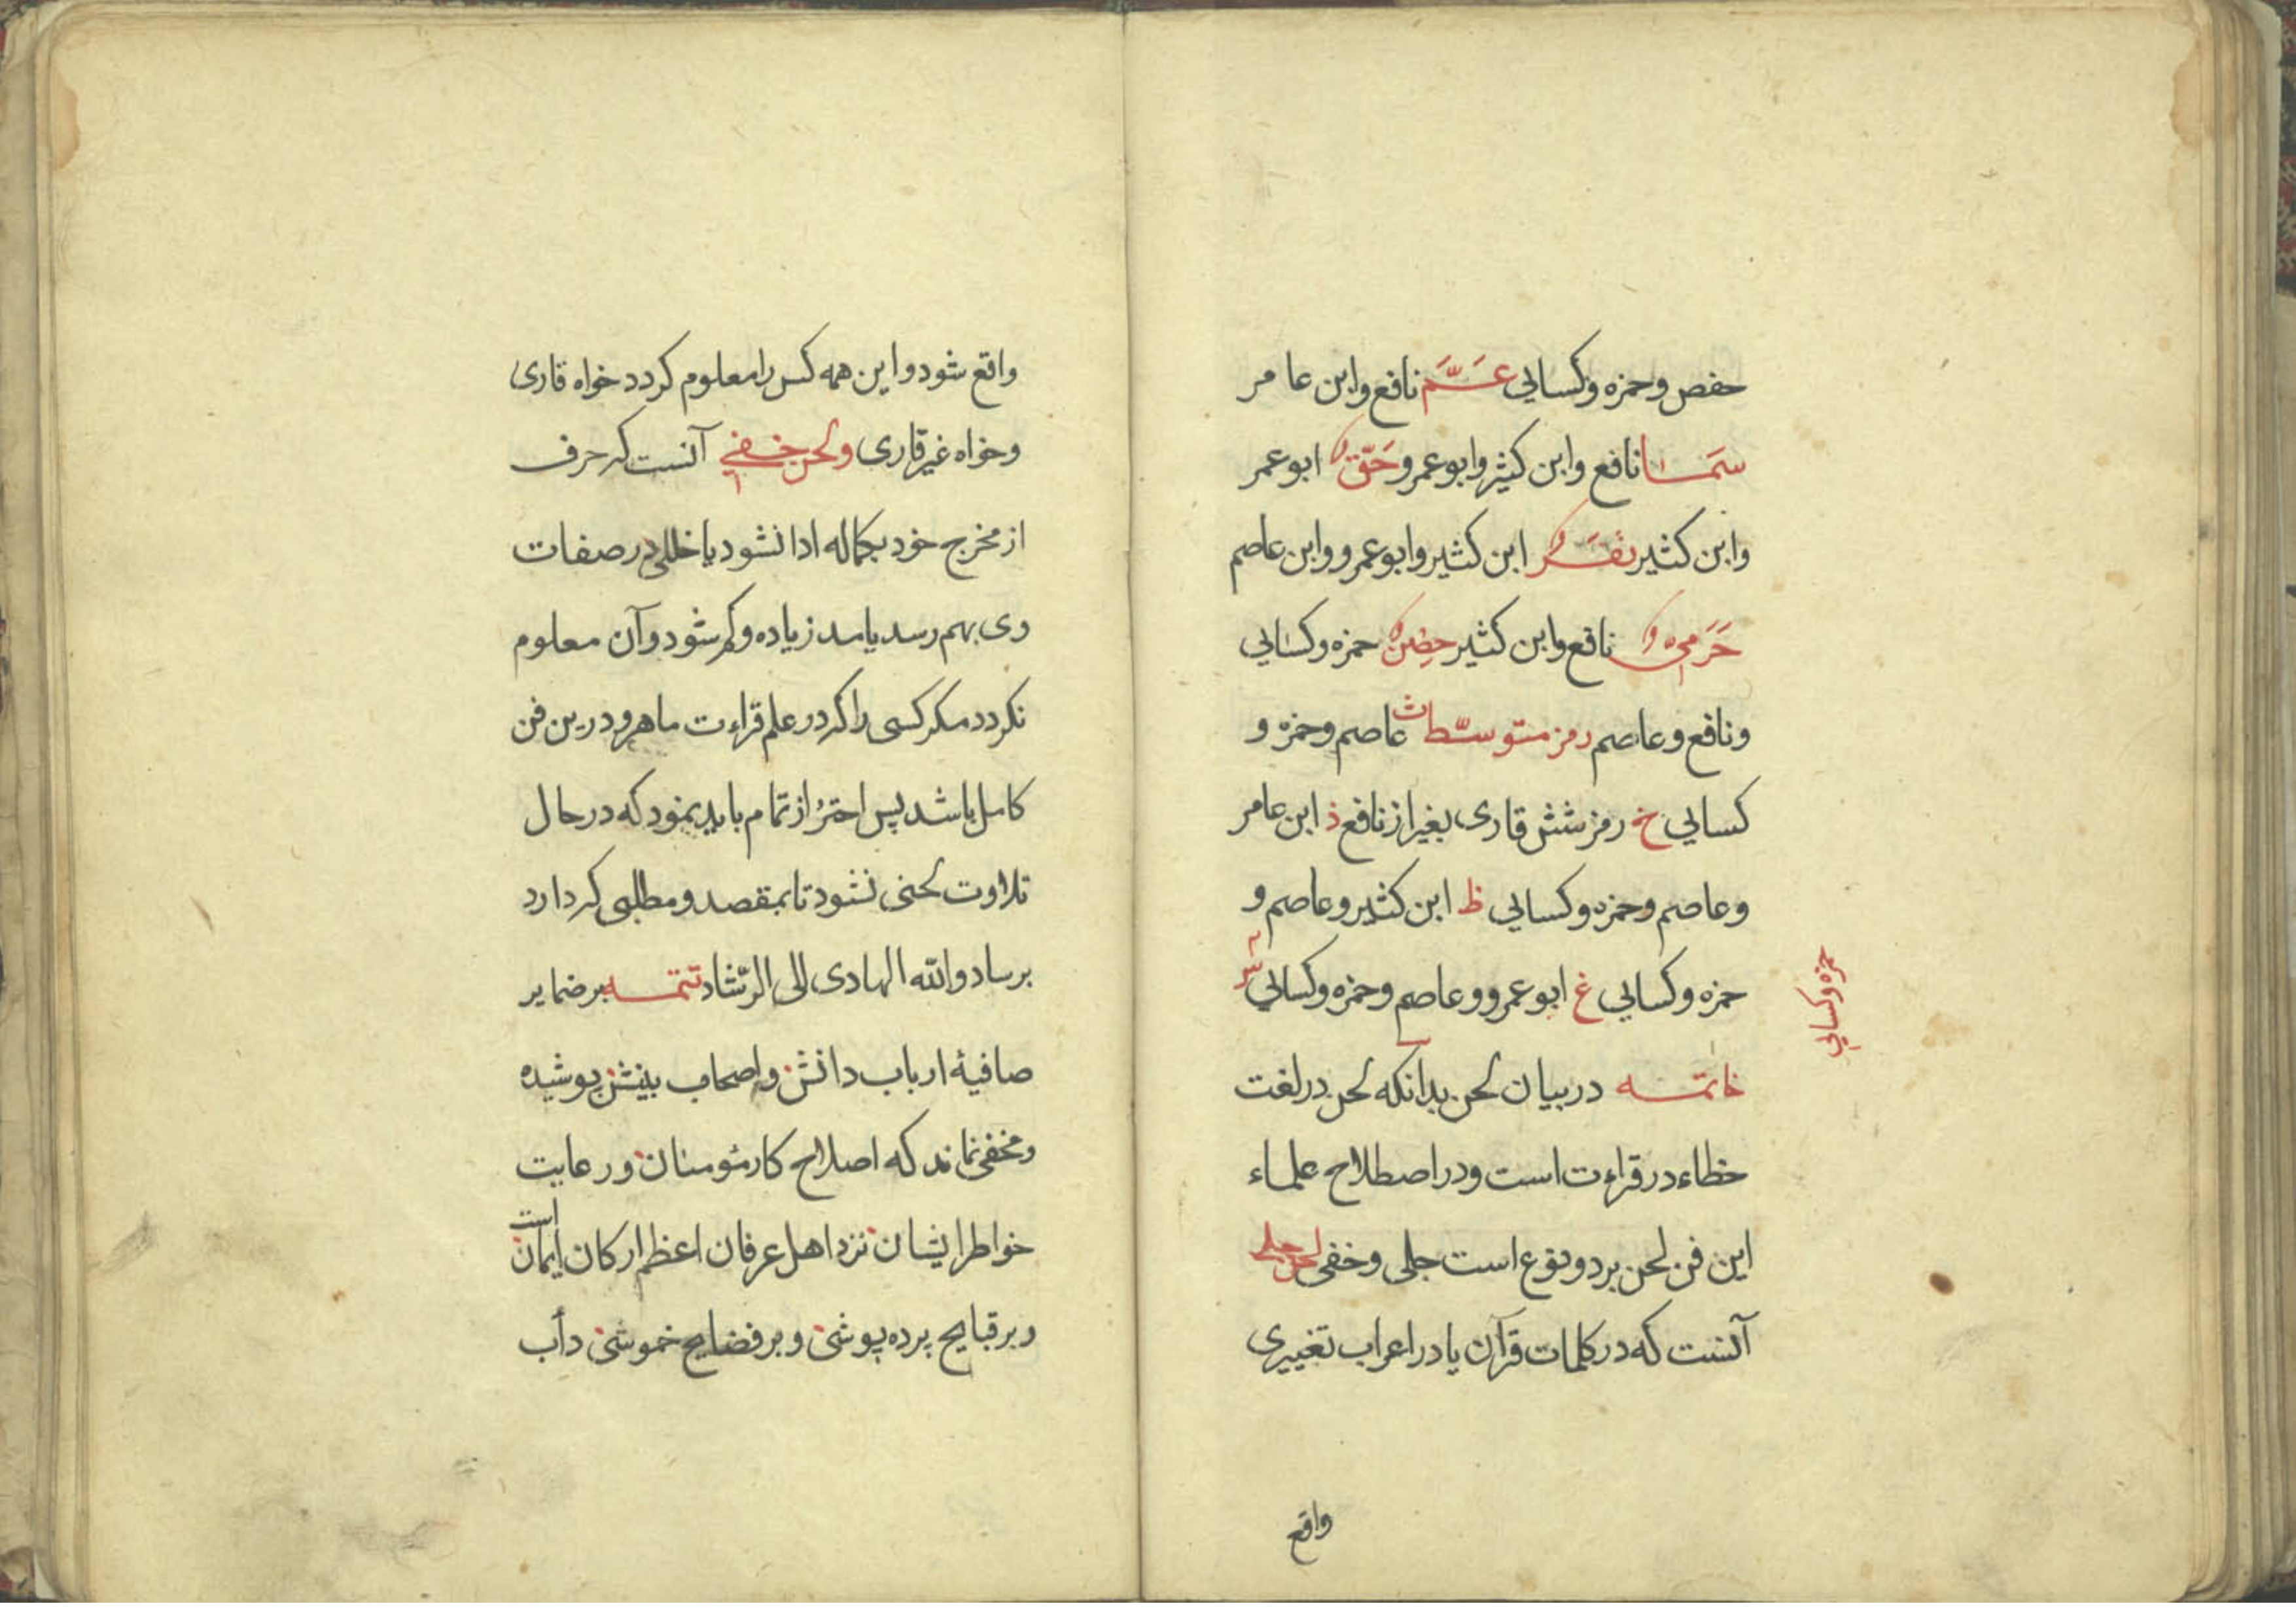 حفص وحمزه وکسایی عَمَّ نافع وابن عامر
سَمَا نافع وابن کثیر وابوعمرو حَقّ ابوعمر
وابن کثیر نَفَر ابن کثیر وابوعمرو وابن عاصم
حَرَمِی نافع وابن کثیر حِصْن حمزه وکسایی
ونافع وعاصم رمز متوسّطات عاصم وحمزه و
کسایی خ رمز شش قاری بغیر از نافع ذ ابن عامر
وعاصم وحمزه وکسایی ظ ابن کثیر وعاصم و
حمزه وکسایی غ ابوعمرو وعاصم وحمزه وکسایی ش
حمزه وکسایی
خاتمه در بیان لحن بدانکه لحن در لغت
خطاء در قراءت است ودر اصطلاح علماء
این فن لحن بر دو نوع است جلی وخفی لحن جلی
آنست که در کلمات قرآن یا در اعراب تغییری
واقع
واقع شود واین همه کس را معلوم کردد خواه قاری
وخواه غیر قاری ولحن خفی آنست که حرف
از مخرج خود بکماله ادا نشود یا خللی در صفات
وی بهم رسد یا مد زیاده وکم شود وآن معلوم
نکردد مکر کسی را که در علم قراءت ماهر ودرین فن
کامل باشد پس احتراز تمام باید نمود که در حال
تلاوت لحنی نشود تا بمقصد ومطلبی که دارد
برساد والله الهادی الی الرّشاد تتمه بر ضمایر
صافیهٔ ارباب دانش واصحاب بینش پوشیده
ومخفی نماند که اصلاح کار مٶمنان ورعایت
خواطر ایشان نزد اهل عرفان اعظم ارکان ایمان است
وبر قبایح پرده پوشی وبر فضایح خموشی دأب